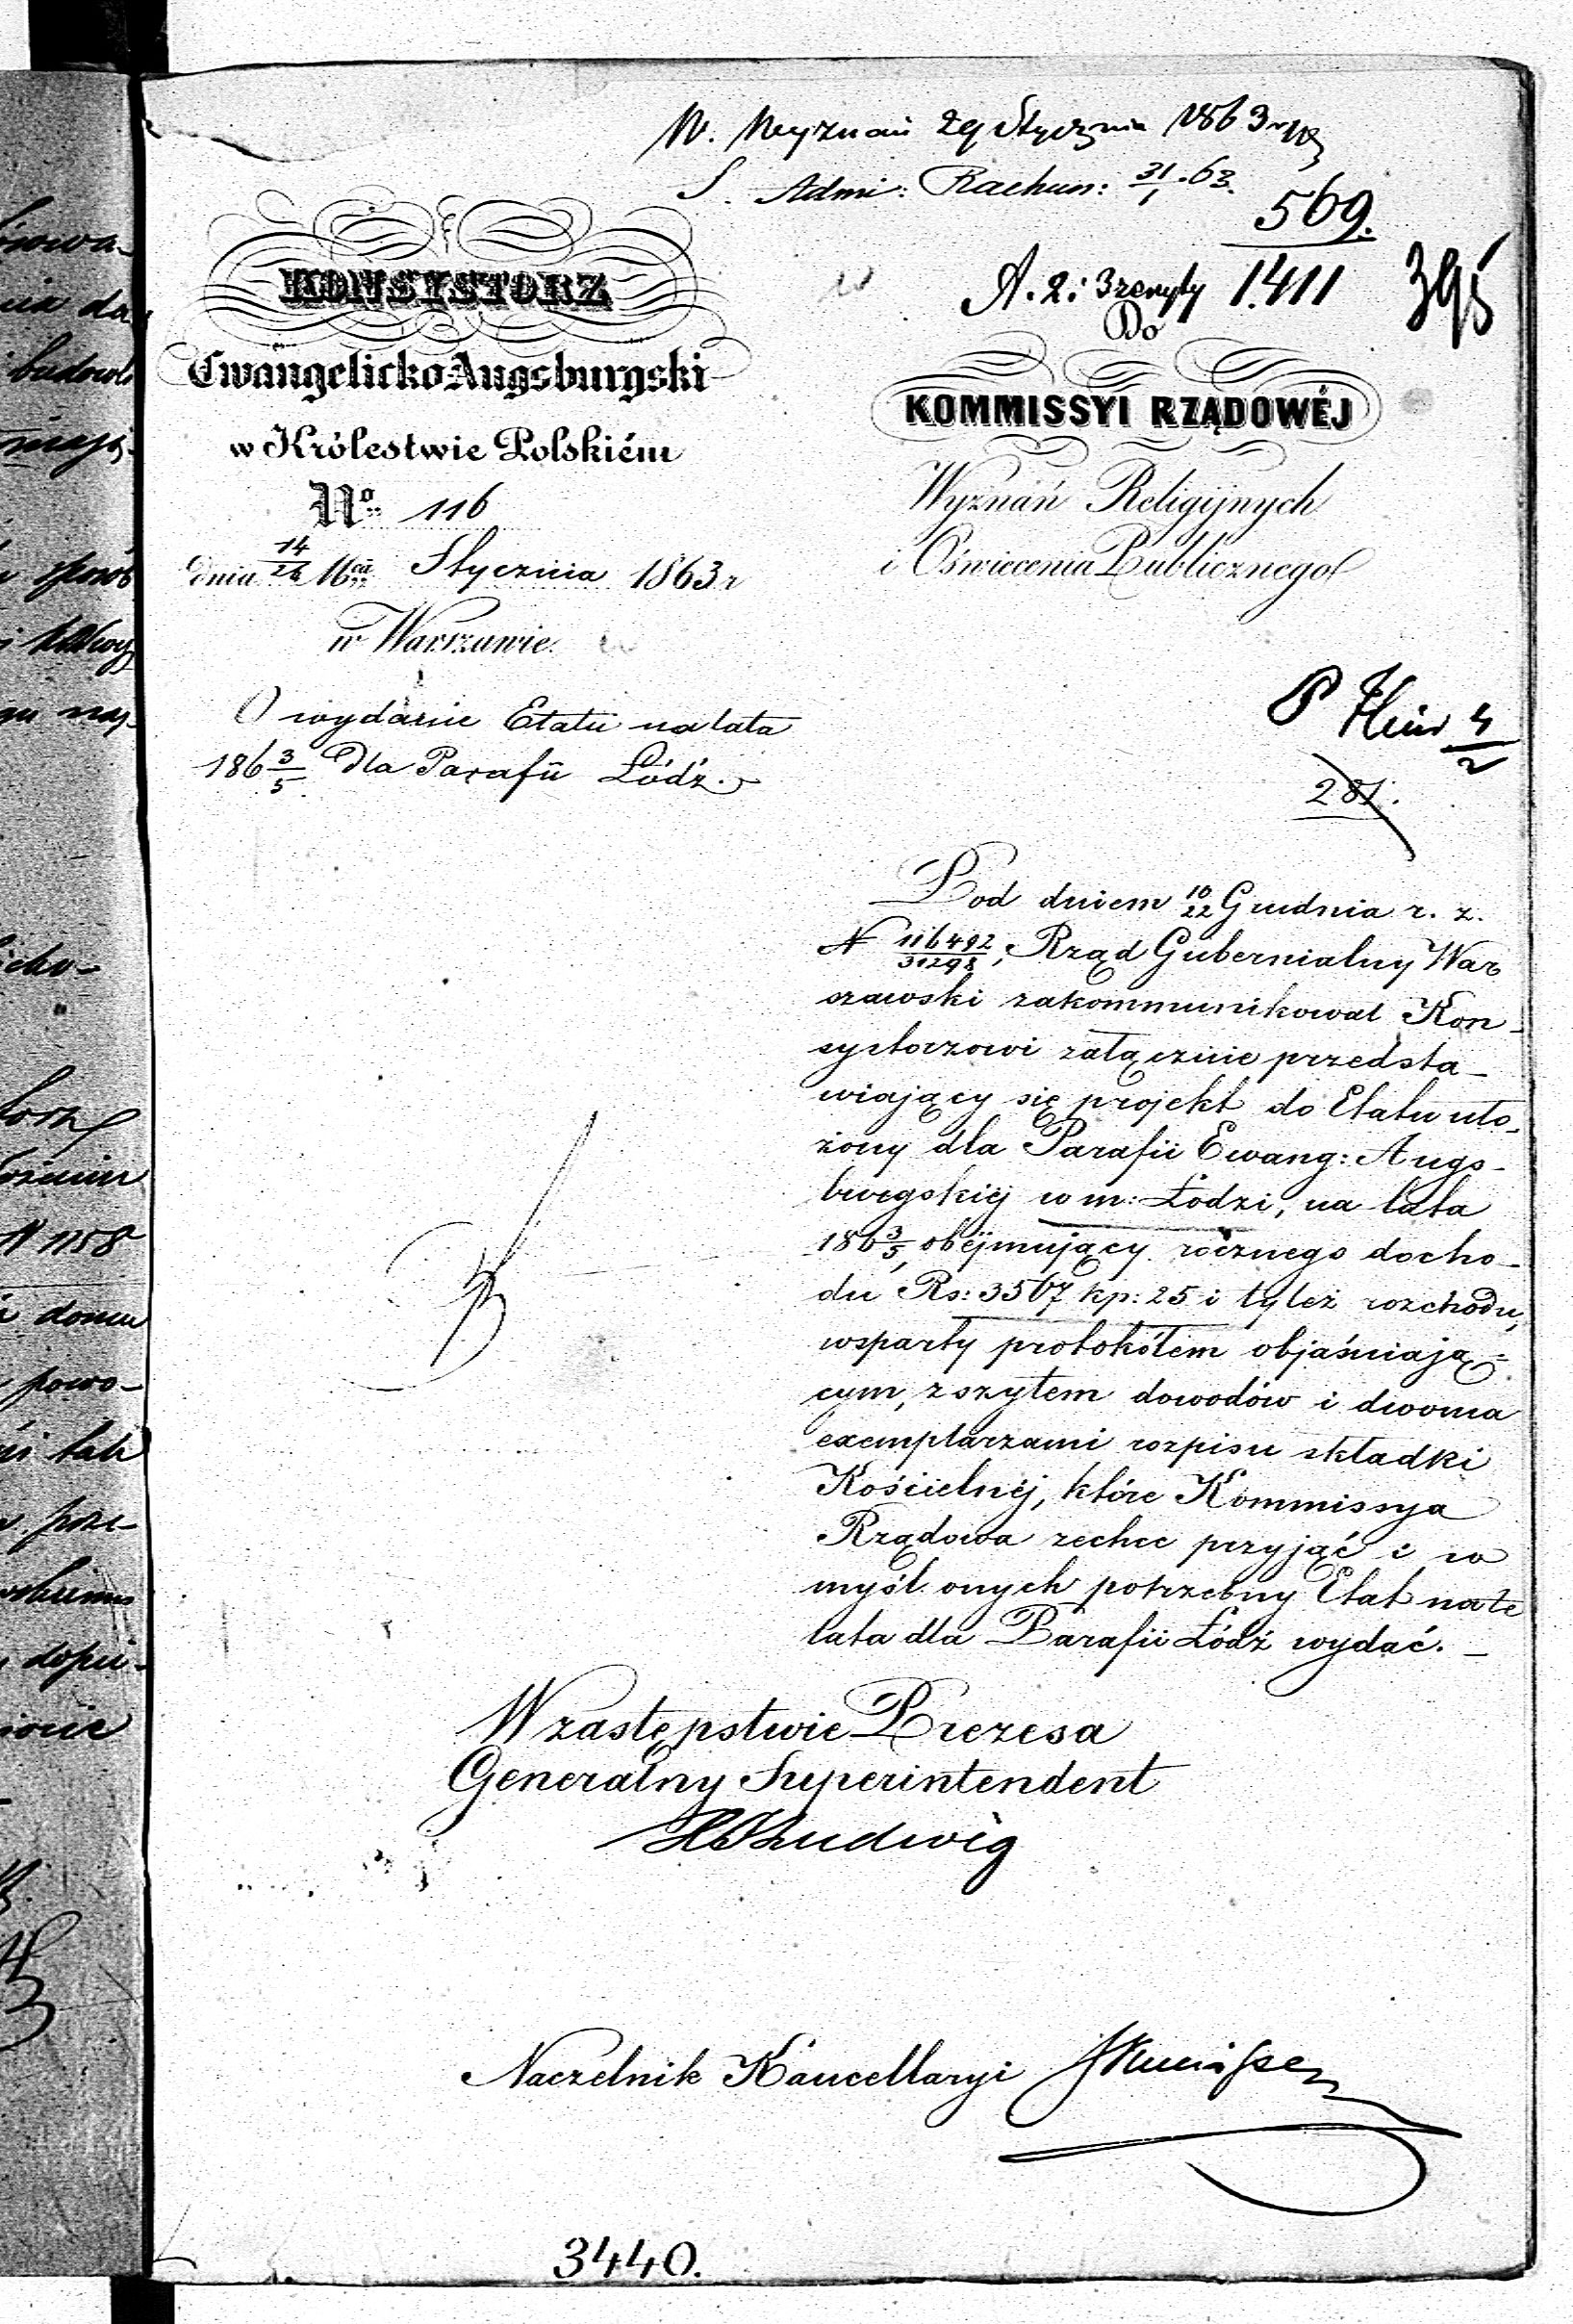 W. Wyznań 29 Stycznia 1863 r
S. Admi: Rachun: 31/1 63.
569.
A. 2 i 3 zeszyty 1411
395
KONSYSTORZ
Ewangelicko-Augsburgski
w Królestwie Polskiém
No 116
dnia 14/26 Stycznia 1863 r
w Warszawie.
O wydanie Etatu na lata
186 3/5 dla Parafii Łódź.
Do
KOMMISSYI RZĄDOWÉJ
Wyznań Religijnych
i Oświecenia Publicznego
P 4/2
281.
Pod dniem 10/22 Grudnia r. z.
N 116492/31298, Rząd Gubernialny War
szawski zakommunikował Kon-
systorzowi załącznie przedsta-
wiający się projekt do Etatu uło-
żony dla Parafii Ewang: Augs-
burgskiéj w m: Łodzi, na lata
186 3/5, obéjmujący rocznego docho-
du Rs: 3567 kp: 25 i tyleż rozchodu,
wsparty protokółem objaśniają-
cym, zszytem dowodów i dwoma
exemplarzami rozpisu składki
Kościelnéj, które Kommissya
Rządowa zechce przyjąć i w
myśl onych potrzebny Etat na te
lata dla Parafii Łódź wydać.
W zastępstwie Prezesa
Generalny Superintendent
Ludwig
Naczelnik Kancellaryi
3440.
N 1158
domu
powo-
tak